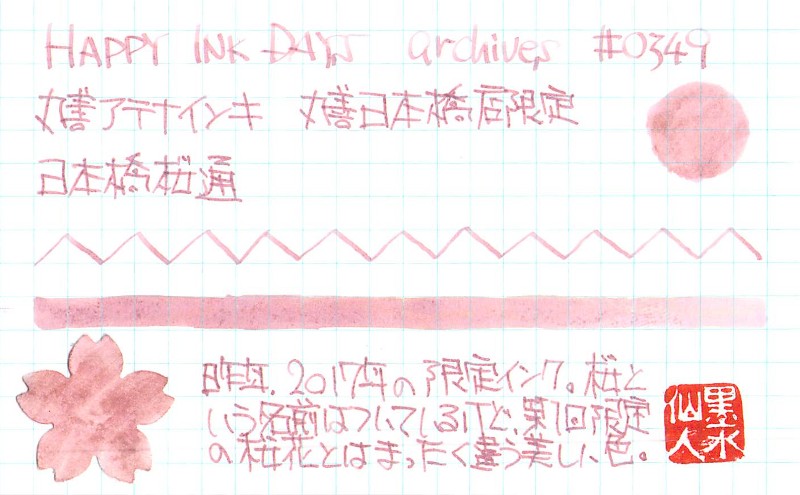 HAPPY INK DAYS archives #0349
丸善アテナインキ 丸善日本橋店限定
日本橋桜通
昨年、2017年の限定インク。桜と
いう名前はついているけど、第1回限定
の桜花とはまったく違う美しい色。
墨水
仙人